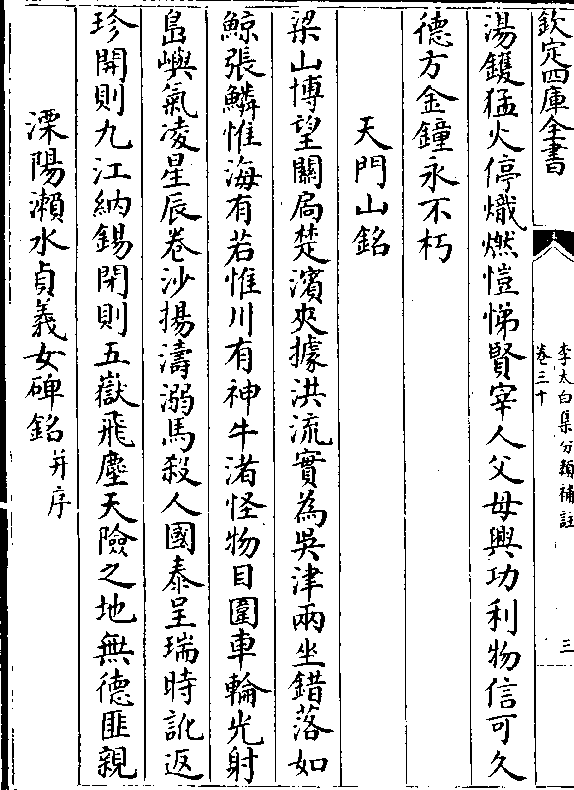 欽定四庫全書
李太白集分類補註
卷三十
三
湯鑊猛火停熾燃愷悌賢宰人父母興功利物信可久
德方金鐘永不朽
天門山銘
梁山博望關扃楚濱夾據洪流實為吳津兩坐錯落如
鯨張鱗惟海有若惟川有神牛渚怪物目圍車輪光射
島嶼氣凌星辰卷沙揚濤溺馬殺人國泰呈瑞時訛返
珍開則九江納錫閉則五嶽飛塵天險之地無德匪親
溧陽瀨水貞義女碑銘并序